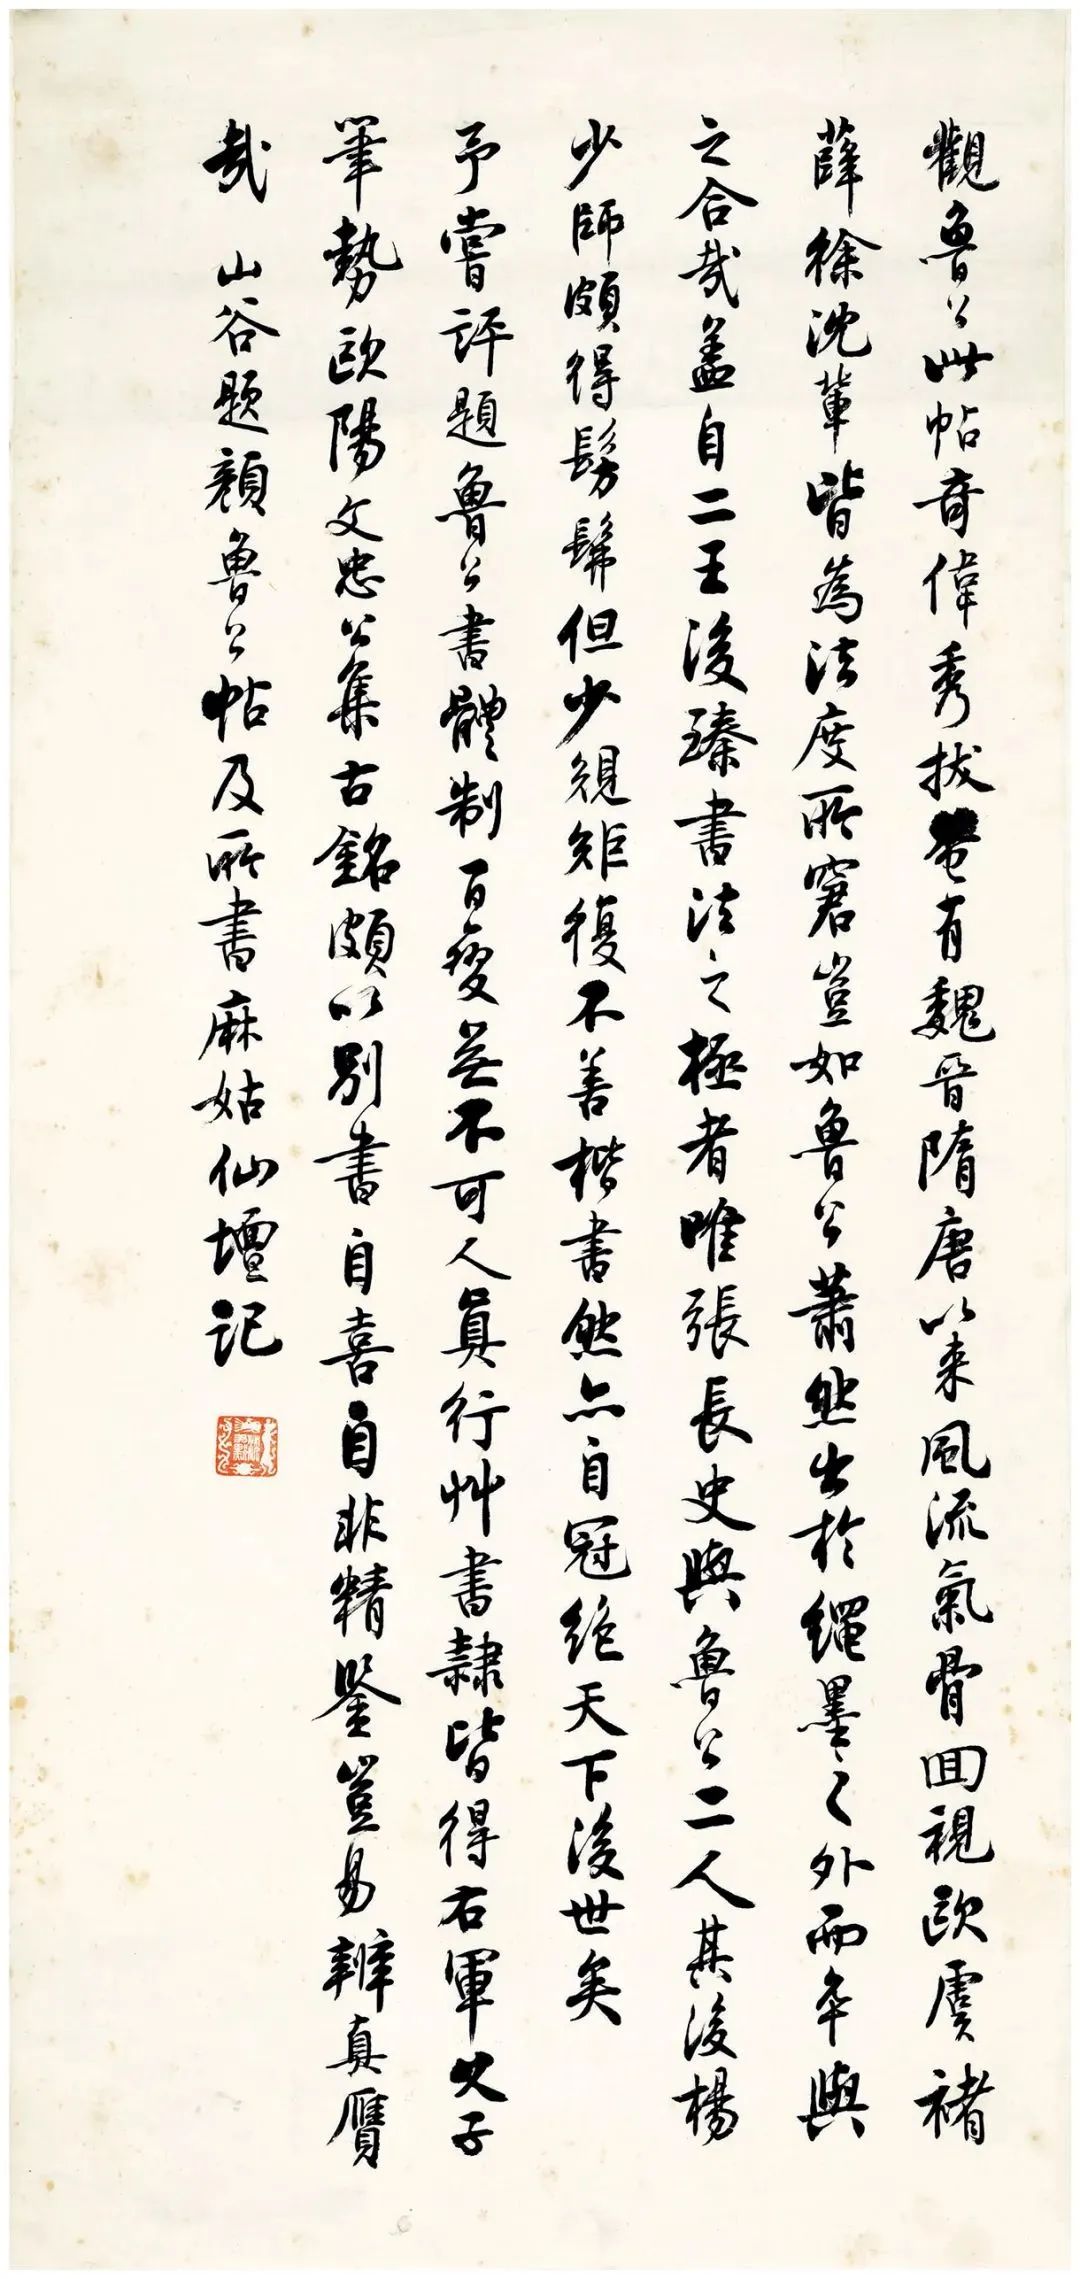 觀魯公此帖奇偉秀拔奄有魏晉隋唐以來風流氣骨回視歐虞褚
薛徐沈輩皆為法度所窘豈如魯公蕭然出於繩墨之外而卒與
之合哉蓋自二王後臻書法之極者唯張長史與魯公二人其後楊
少師頗得髣髴但少規矩復不善楷書然亦自冠絕天下後世矣
予嘗評題魯公書體制百變無不可人真行艸書隸皆得右軍父子
筆勢歐陽文忠公集古銘頗以別書自喜自非精鑒豈易辨真贗
哉 山谷題顏魯公帖及所書麻姑仙壇記